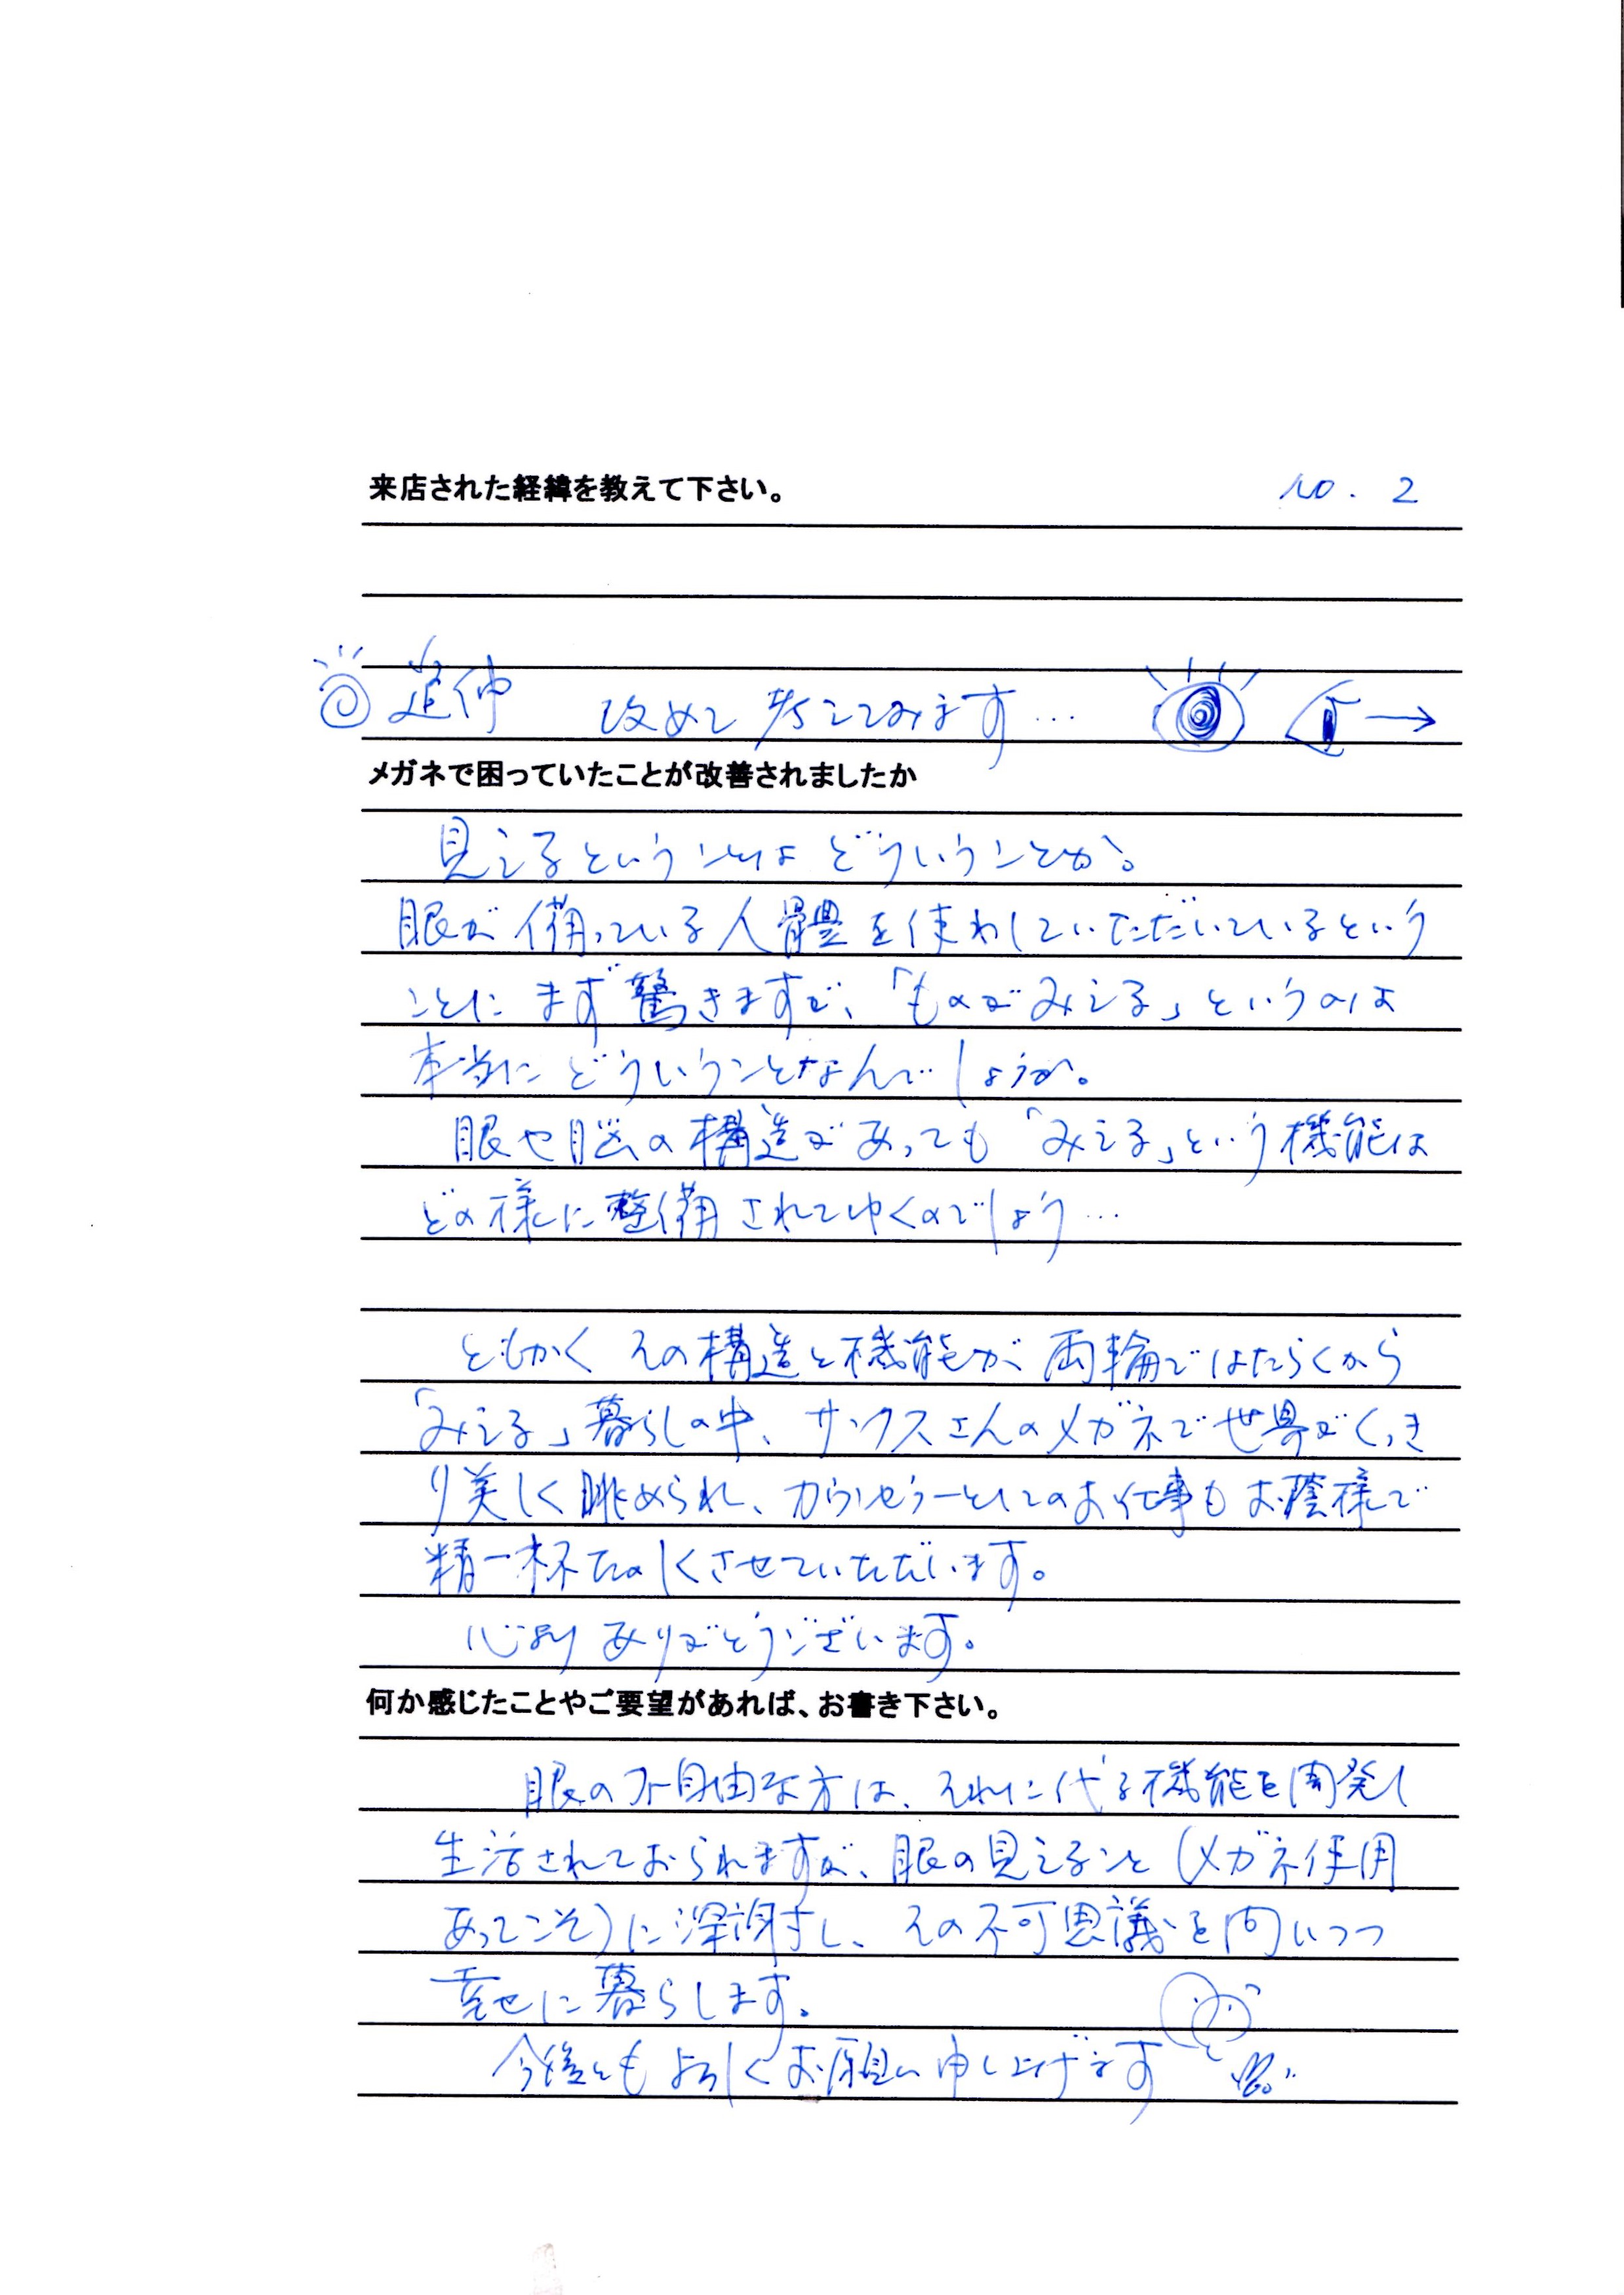 来店された経緯を教えて下さい。 no. 2
追伸 改めて考えてみます…
メガネで困っていたことが改善されましたか
見えるということは どういうことか。
眼が備っている人體を使わしていただいているという
ことに まず驚きますが、「ものがみえる」というのは
本当に どういうことなんでしょうか。
眼や脳の構造があっても「みえる」という機能は
どの様に整備されてゆくのでしょう…
ともかく その構造と機能が 両輪ではたらくから
「みえる」暮らしの中、サンクスさんのメガネで世界がくっき
り美しく眺められ、カウンセラーとしてのお仕事もお蔭様で
精一杯たのしくさせていただいます。
心より ありがとうございます。
何か感じたことやご要望があれば、お書き下さい。
眼の不自由な方は、それに代る機能を開発し
生活されておられますが、眼の見えること(メガネ使用
あってこそ)に深謝し、その不可思議を問いつつ
幸せに暮らします。
今後ともよろしくお願い申し上げます